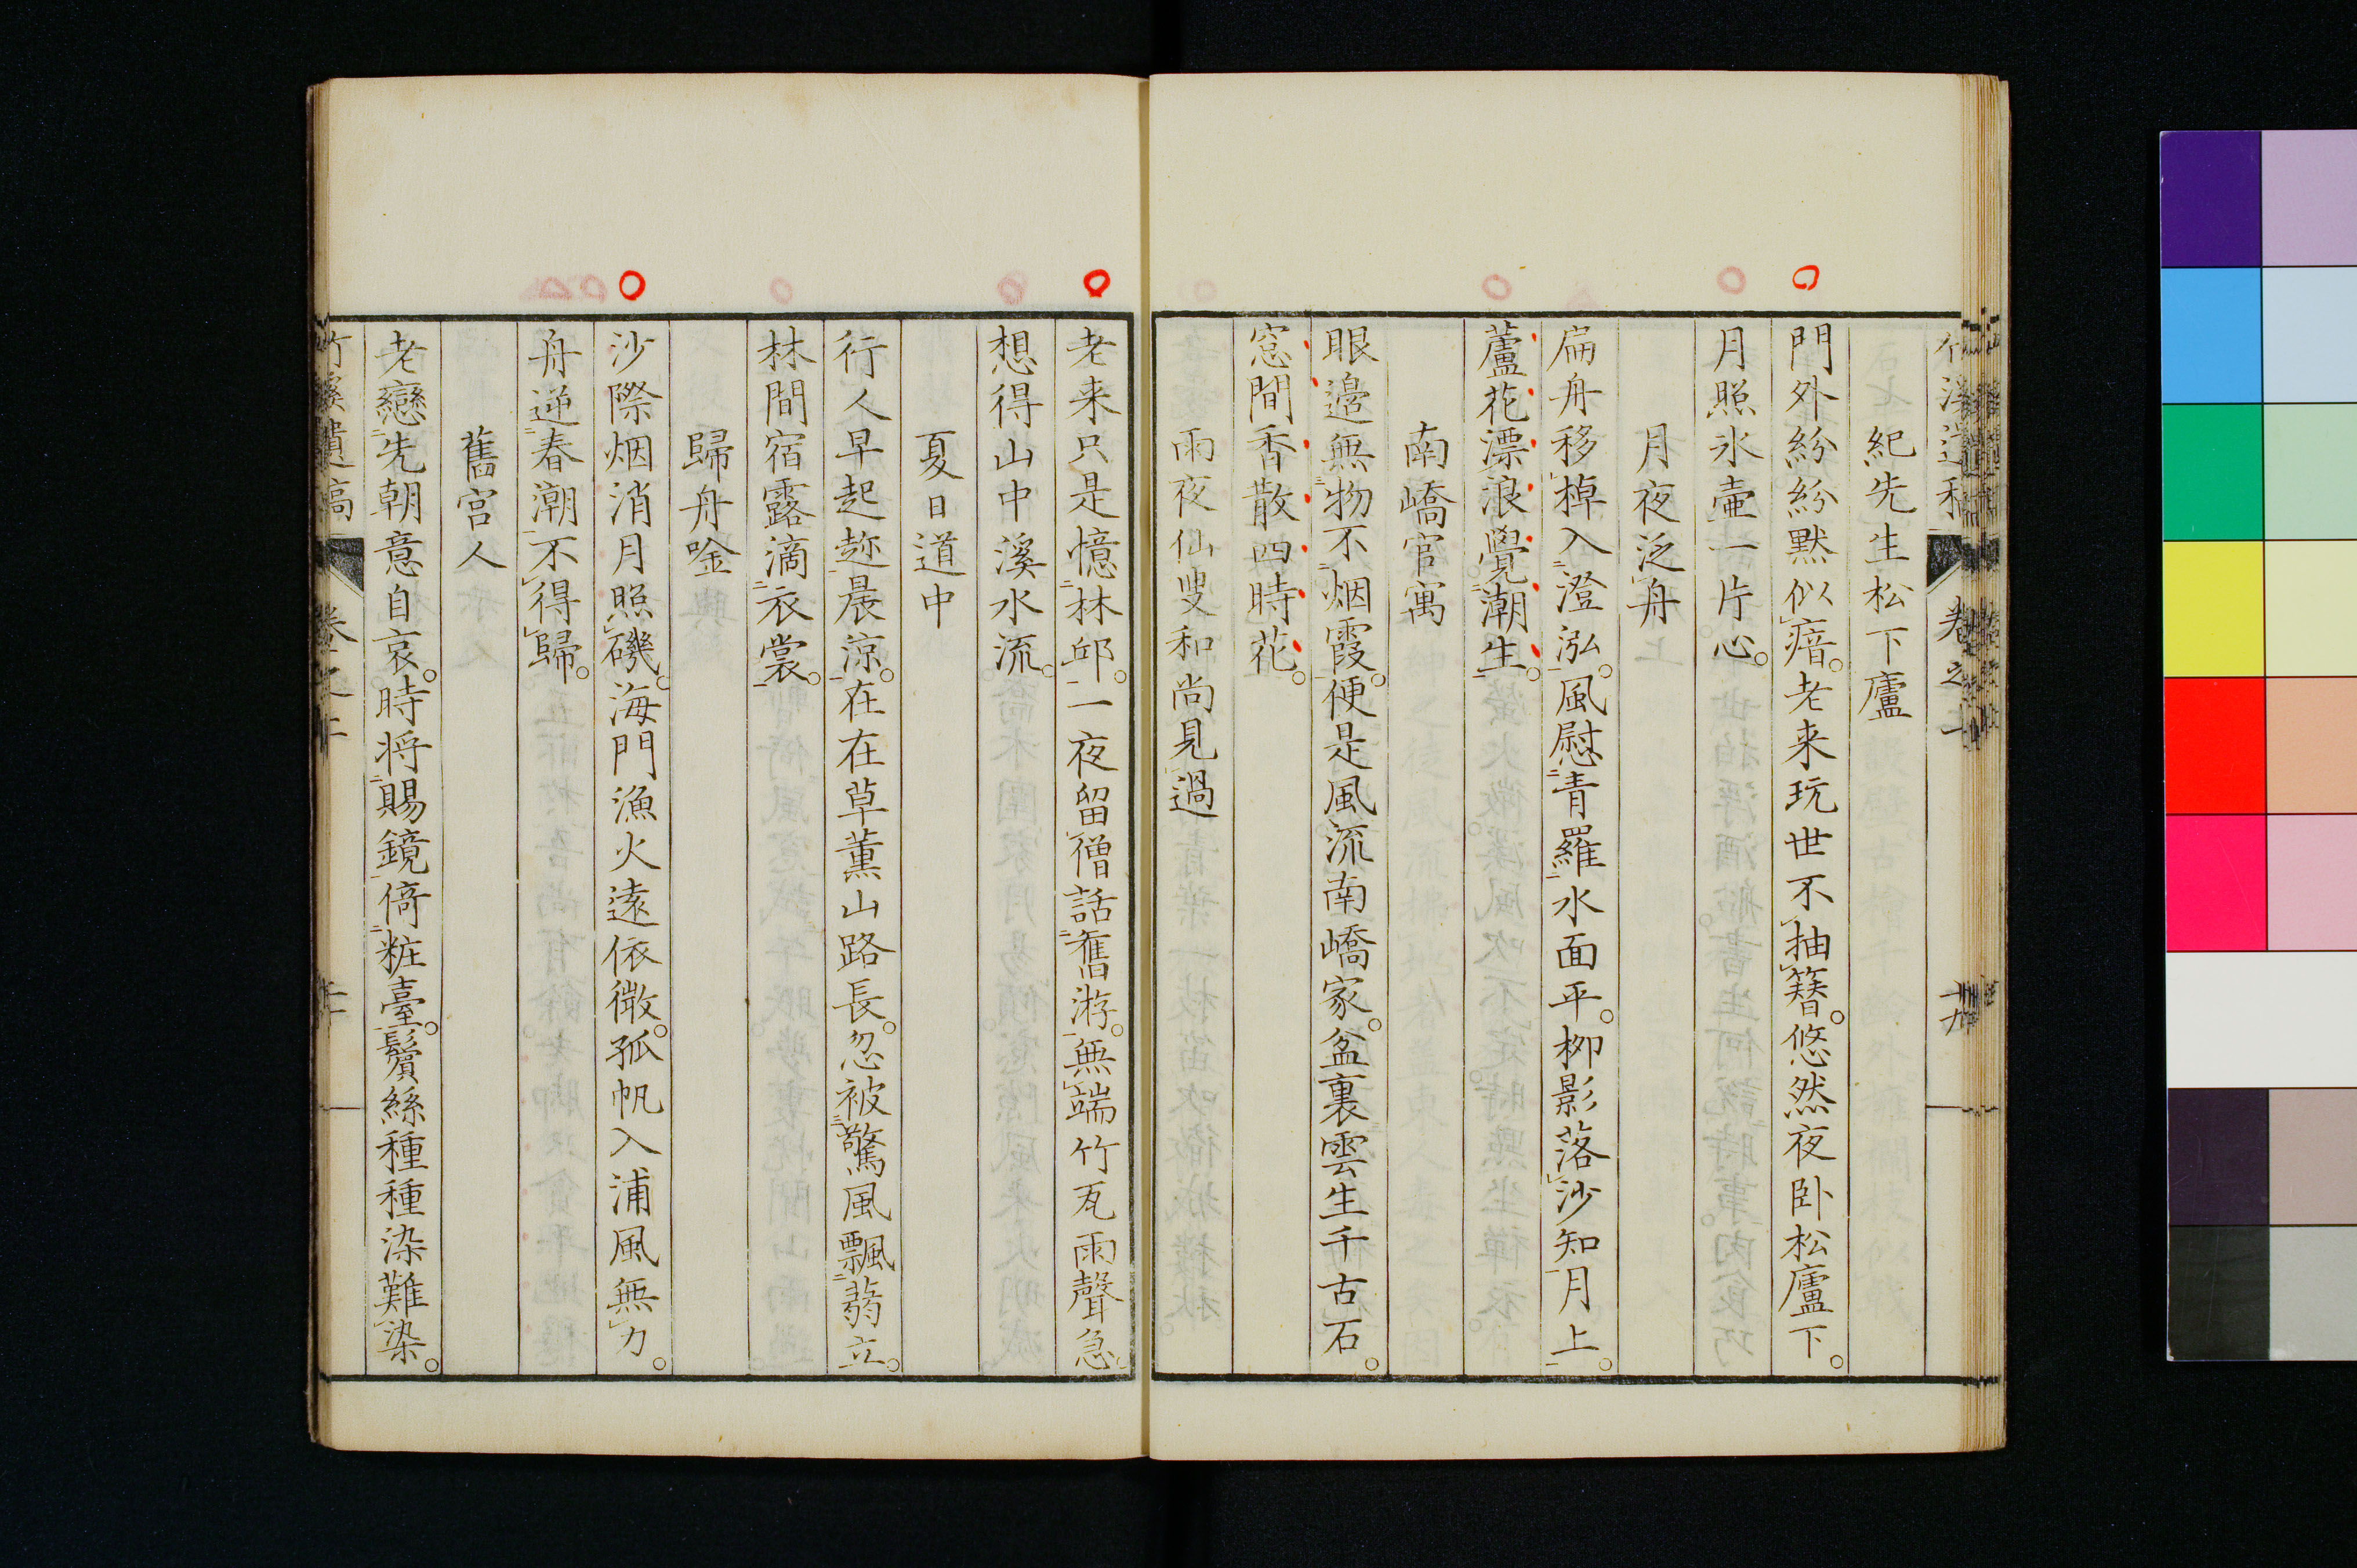 紀先生松下廬
門外紛紛黙似瘖。老来玩世不抽簪。悠然夜卧松廬下。
月照氷壷一片心。
月夜泛舟
扁舟移棹入澄泓。風慰青羅水面平。栁影落沙知月上。
蘆花漂浪覺潮生。
南嶠官寓
眼邉無物不烟霞。便是風流南嶠家。盆裏雲生千古石。
窓間香散四時花。
雨夜仙叟和尚見過
老来只是憶林邱。一夜留僧話舊游。無端竹瓦雨聲急
想得山中溪水流。
夏日道中
行人早起趂晨涼。在在草薫山路長。忽被驚風飄蒻立。
林間宿露滴衣裳。
歸舟唫
沙際烟消月照磯。海門漁火遠依微。孤帆入浦風無力。
舟逆春潮不得歸。
舊宮人
老戀先朝意自哀。時将賜鏡倚粧臺。鬢絲種種染難染。
竹溪遺稿 卷之上